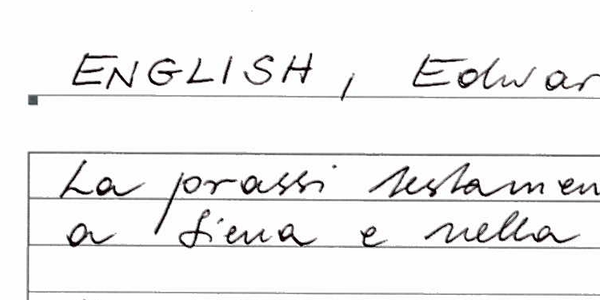 ENGLISH, Edwar
La prassi testamen
a Siena e nella